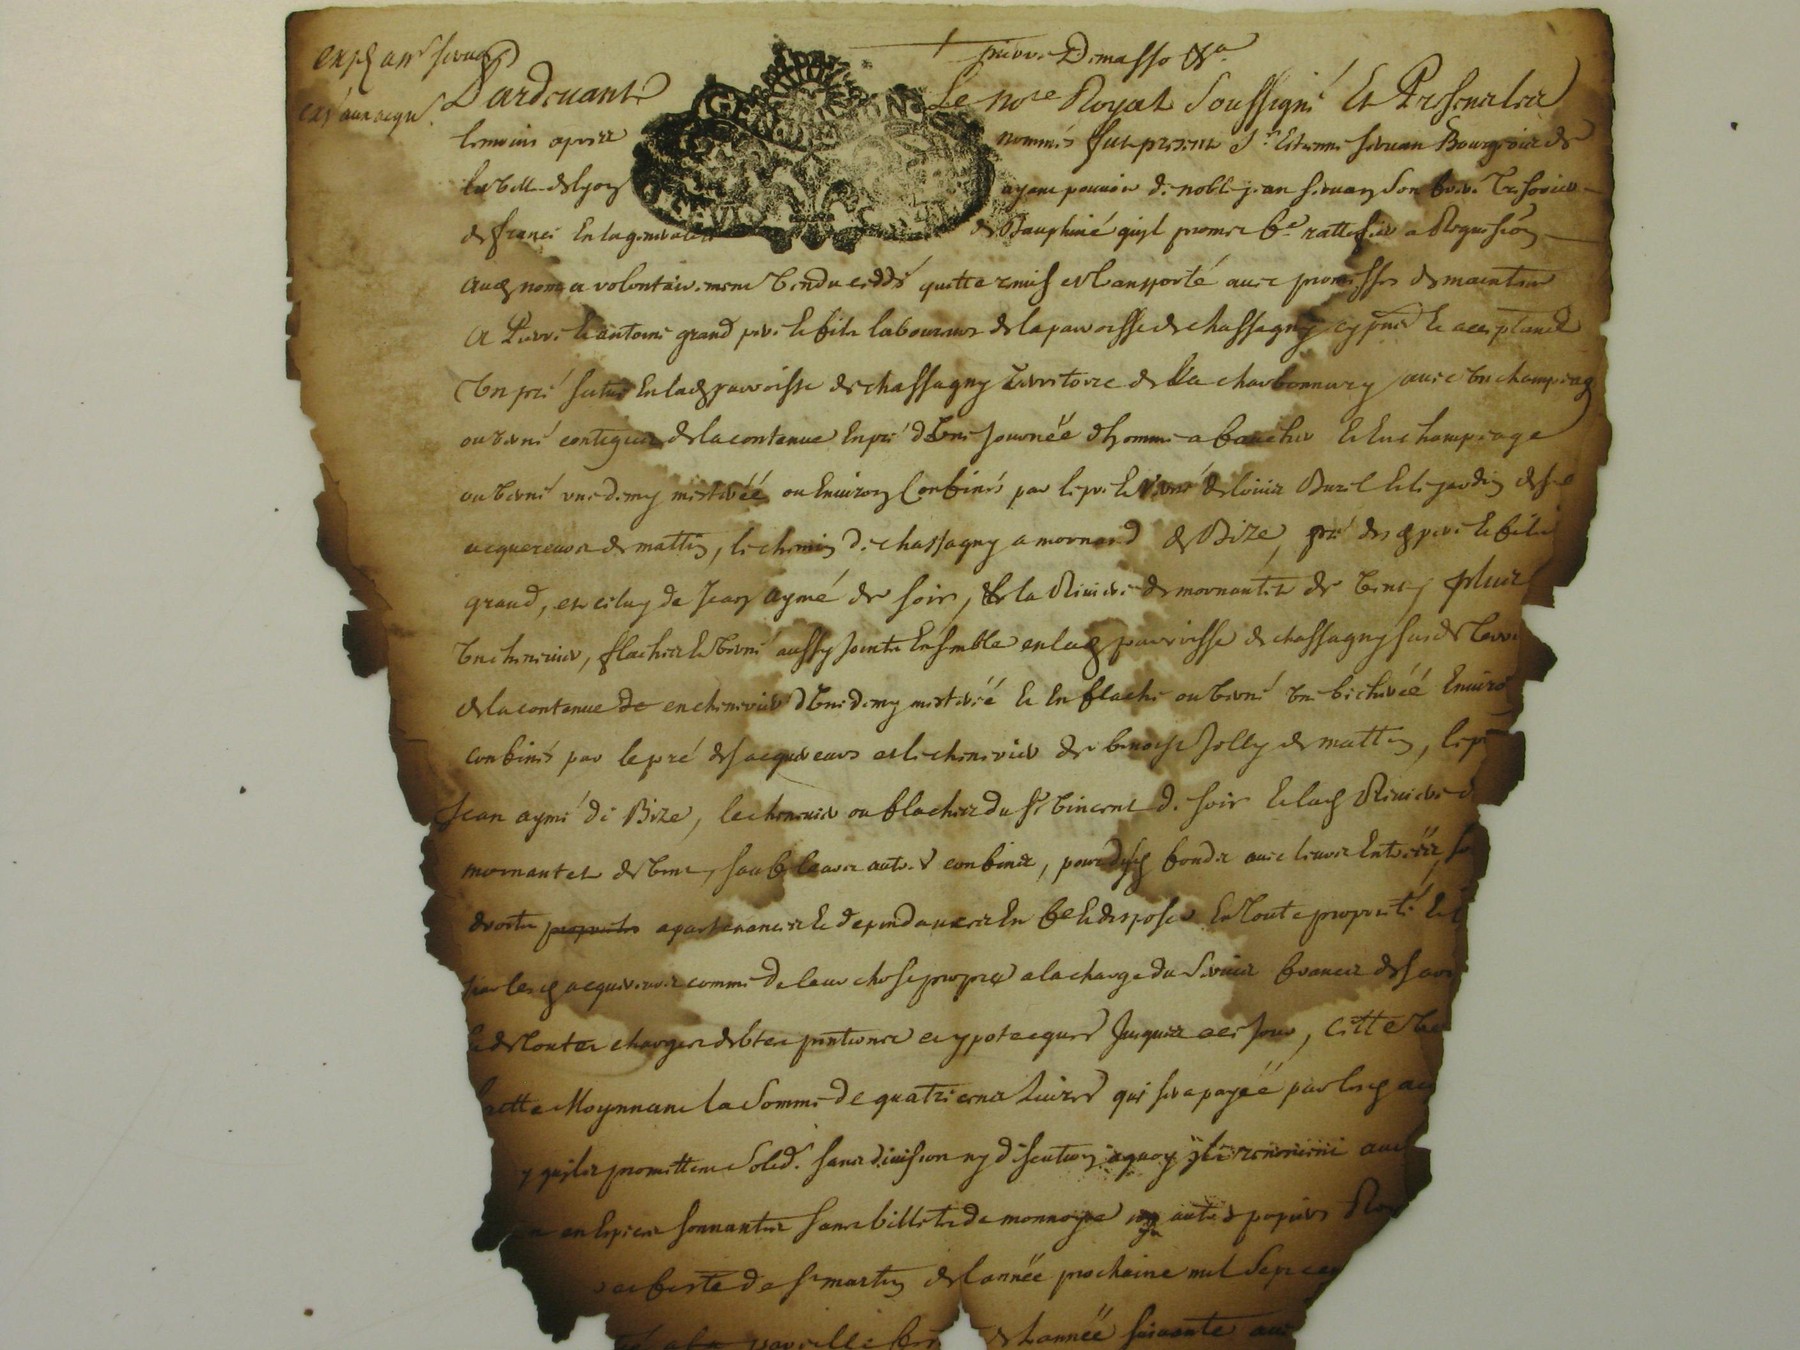 Pardevant Le no.re Royal Soussigné Et Presence des
temoins apres nommés fut present S.r Estienne Servan Bourgeois de
la ville de Lyon ayant pouvoir de noble jean Servan Son frere Tresorier
de france En la generalité de Dauphiné quil promet f.e rattifier a Requisi͞on
aud nom a volontairement Vendu ceddé quitté remis et transporté avec promesses de maintenir
A Pierre et antoine grand pere et fils laboureurs de la parroisse de chassagny cy pnts et acceptants
Un pré scitué En lad parroisse de chassagny Territoire de La charbonniery avec Un champeage
ou verné contigus de la contenue En pré d'Une Journée d'homme a faucher et En champeage
ou verné une demy mesterëé ou Environ Confinés par le pré et verné de louis Burel et le jardin desd
acquereurs de mattin, le chemin de chassagny a mornand de Bize, pré desd pere et fils
grand, et celuy de Jean Aymé de soir, et la Riviere de mornantet de Vent, plus
Un chenevier, flachere et verné aussy Joints Ensemble en lad parroisse de chassagny susd
de la contenue de en chenevier d'Une demy mesterëé et En flache ou verné Une bicherëé Environ
confinés par le pré desd acquereurs et le chenevier de benoist Jolly de mattin, le pré
Jean aymé de Bize, le chenevier ou flacher du S.r Vincent de soir et lad Riviere de
mornantet de Vent, sauf leurs autres confins, pour desd fonds avec leurs Entrëés, so
droits proprietes apartenances et dependances En f.e et disposer En Toute proprieté Et
par lesd acquereurs comme de leur chose propre a la charge du Servis francs de
et de Toutes charges debtes pentions et ypotecques Jusques a ce Jour, Cette Ve
faitte Moyennant la Somme de quatre cents Livres qui sera payëé par lesd ac
y quils promettent Solid.t sans division ny discution a quoy ils renoncent
en Especes sonnantes sans billets de monnoye ny autres papiers Roy
feste de S.t martin de l'annëé prochaine mil Sept cen
pareille de L'annëé suivante